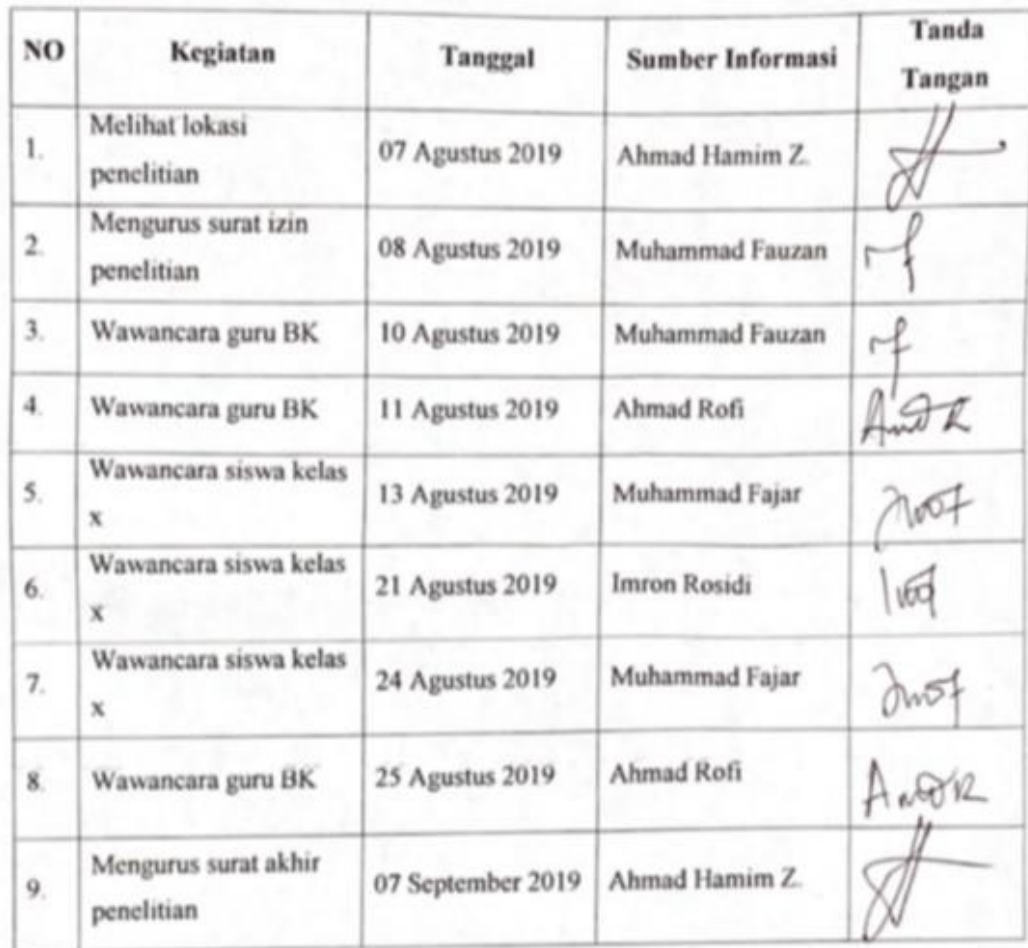 NO Kegiatan Tanggal Sumber Informasi Tanda Tangan
1. Melihat lokasi penelitian 07 Agustus 2019 Ahmad Hamim Z.
2. Mengurus surat izin penelitian 08 Agustus 2019 Muhammad Fauzan
3. Wawancara guru BK 10 Agustus 2019 Muhammad Fauzan
4. Wawancara guru BK 11 Agustus 2019 Ahmad Rofi
5. Wawancara siswa kelas x 13 Agustus 2019 Muhammad Fajar
6. Wawancara siswa kelas x 21 Agustus 2019 Imron Rosidi
7. Wawancara siswa kelas x 24 Agustus 2019 Muhammad Fajar
8. Wawancara guru BK 25 Agustus 2019 Ahmad Rofi
9. Mengurus surat akhir penelitian 07 September 2019 Ahmad Hamim Z.